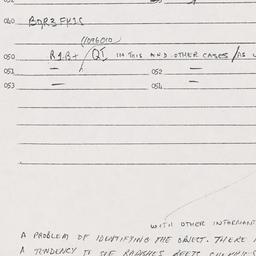 040 B9R3 FKIS
050 R9B+ / QI IN THIS AND OTHER CASES / AS
051 — 052 —
053 — 054 —
WITH OTHER INFORMANT
A PROBLEM OF IDENTIFYING THE OBJECT. THERE
A TENDENCY TO